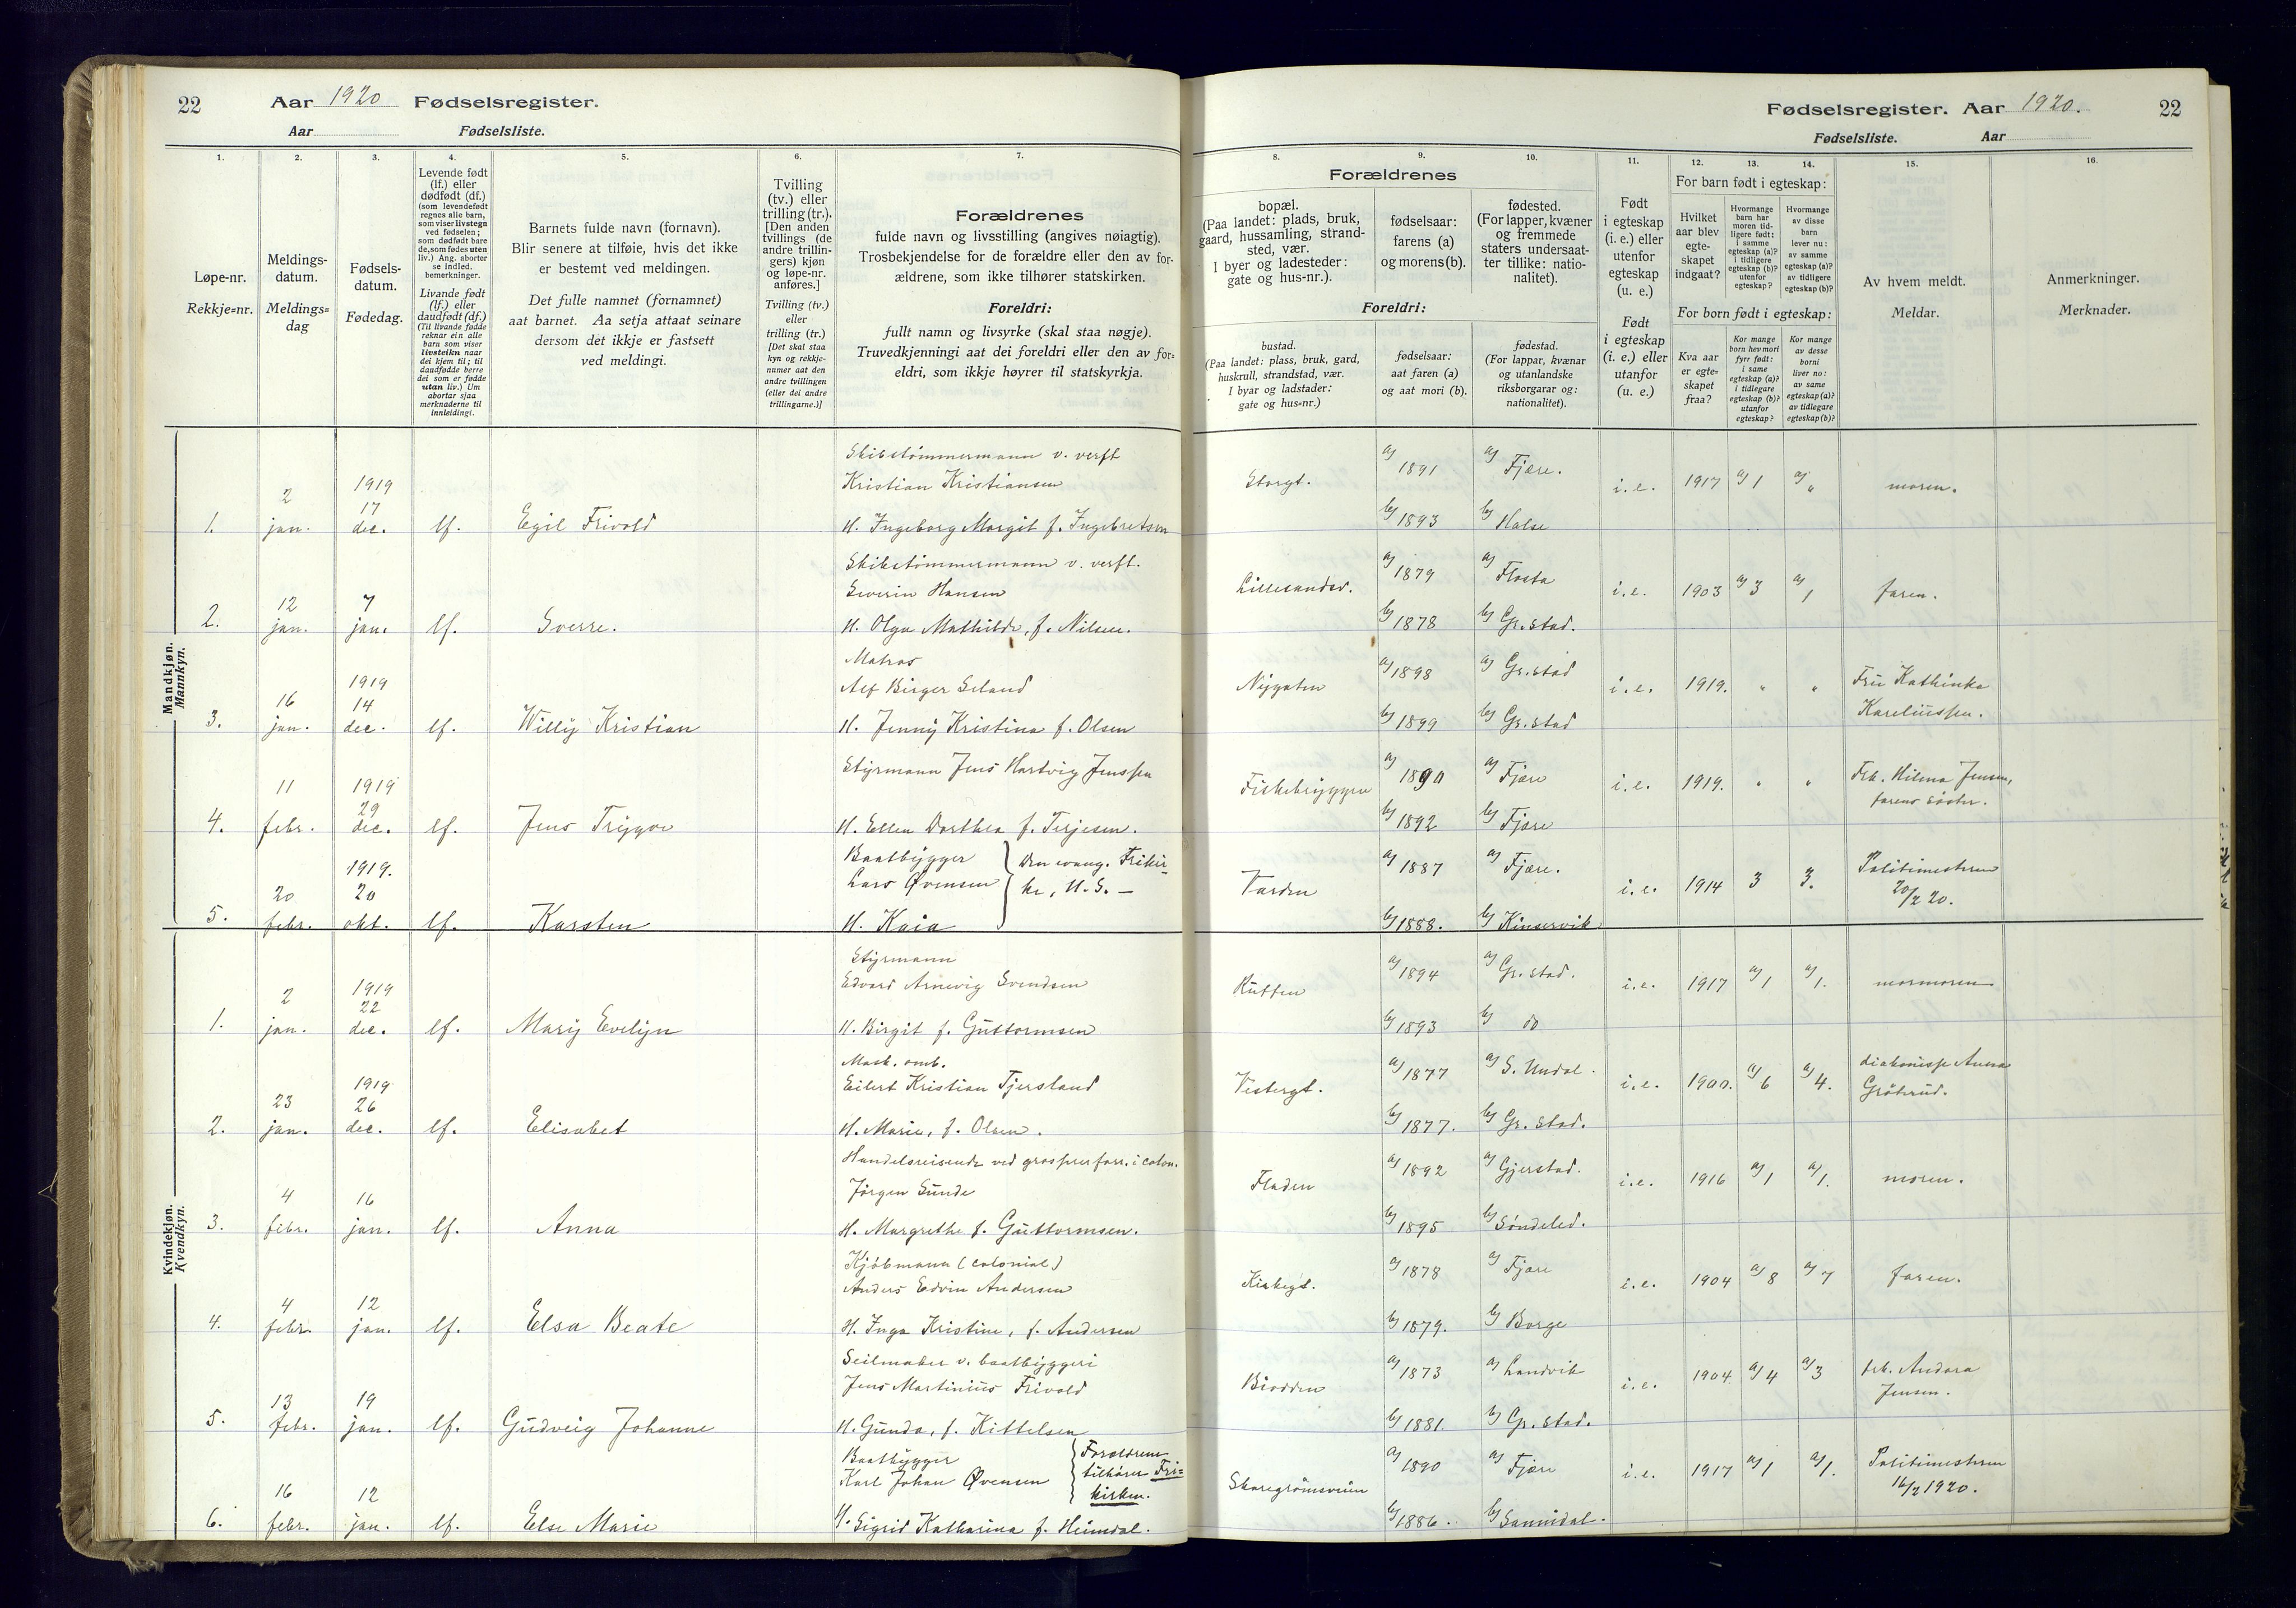 22 Aar 1920 Fødselsregister.
Aar Fødselsliste.
Fødselsregister. Aar 1920. 22
Fødselsliste. Aar
1. 2. 3. 4. 5. 6. 7.
8. 9. 10. 11. 12. 13. 14. 15. 16.
Løpe-nr.
Rekkje=nr.
Meldings-
datum.
Meldings=
dag
Fødsels-
datum.
Fødedag.
Levende født
(lf.) eller
dødfødt (df.)
(som levendefødt
regnes alle barn,
som viser livstegn
ved fødselen;
som dødfødt bare
de, som fødes uten
liv.) Ang. aborter
se indled.
bemerkninger.
Livande født
(lf.) eller
daudfødt (df.)
(Til livande fødde
reknar ein alle
barn som viser
livsteikn naar
dei kjem til; til
daudfødde berre
dei som er fødde
utan liv.) Um
abortar sjaa
merknaderne til
innleidingi.
Barnets fulde navn (fornavn).
Blir senere at tilføie, hvis det ikke
er bestemt ved meldingen.
Det fulle namnet (fornamnet)
aat barnet. Aa setja attaat seinare
dersom det ikkje er fastsett
ved meldingi.
Tvilling
(tv.) eller
trilling (tr.).
[Den anden
tvillings (de
andre trillin-
gers) kjøn
og løpe-nr.
anføres.]
Tvilling (tv.)
eller
trilling (tr.)
[Det skal staa
kyn og rekkje-
numer aat den
andre tvillingen
(eller dei andre
trillingarne.)]
Forældrenes
fulde navn og livsstilling (angives nøiagtig).
Trosbekjendelse for de forældre eller den av for-
ældrene, som ikke tilhører statskirken.
Foreldri:
fullt namn og livsyrke (skal staa nøgje).
Truvedkjenningi aat dei foreldri eller den av for=
eldri, som ikkje høyrer til statskyrkja.
Forældrenes
bopæl.
(Paa landet: plads, bruk,
gaard, hussamling, strand-
sted, vær.
I byer og ladesteder:
gate og hus-nr.).
fødselsaar:
farens (a)
og morens (b).
fødested.
(For lapper, kvæner
og fremmede
staters undersaat-
ter tillike: natio-
nalitet).
Foreldri:
bustad.
(Paa landet: plass, bruk, gard,
huskrull, strandstad, vær.
I byar og ladstader:
gate og hus=nr.)
fødselsaar:
aat faren (a)
og aat mori (b).
fødestad.
(For lappar, kvænar
og utanlandske
riksborgarar og:
nationalitet).
Født
i egteskap
(i. e.) eller
utenfor
egteskap
(u. e.)
Født
i egteskap
(i. e.) eller
utanfor
(u. e.)
For barn født i egteskap:
Hvilket
aar blev
egte-
skapet
indgaat?
Hvormange
barn har
moren tid-
ligere født:
i samme
egteskap (a)?
i tidligere
egteskap (b)?
utenfor
egteskap?
Hvormange
av disse
barn
lever nu:
av samme
egteskap (a)?
av tidligere
egteskap (b)?
For born født i egteskap:
Kva aar
er egte=
skapet
fraa?
Kor mange
born hev mori
fyrr født:
i same
egteskap (a)?
i tidlegare
egteskap (b)?
utanfor
egteskap?
Kor mange
av desse
borni
liver no:
av same
egteskap (a)?
av tidlegare
egteskap (b)?
Av hvem meldt.
Meldar.
Anmerkninger.
Merknader.
Mandkjøn.
Mannkyn.
1. 2 jan. 1919 17 dec. lf. Egil Frivold
Skibstømmermann v. verft
Kristian Kristiansen
H. Ingeborg Margit f. Ingebretsen
Storgt. a) 1891 a) Fjære. i.e. 1917 a) 1 a) " moren.
b) 1893 b) Halse
2. 12 jan. 7 jan. lf. Sverre.
Skibstømmermann v. verft.
Severin Hansen
H. Olga Mathilde, f. Nilsen.
Lillesandsv. a) 1879 a) Flosta i.e. 1903 a) 3 a) 1 faren.
b) 1878 b) Gr.stad.
3. 16 jan. 1919 14 dec. lf. Willy Kristian
Matros
Alf Birger Seland
H. Jenny Kristina f. Olsen
Nygaten a) 1898 a) Gr.stad i.e. 1919. " " Fru Kathinka
Kareliussen.
b) 1899 b) Gr.stad
4. 11 febr. 1919 29 dec. lf. Jens Trygve
Styrmann Jens Hartvig Jenssen
H. Ellen Dorthea f. Terjesen.
Fiskebryggen a) 1890 a) Fjære i.e. 1919. " " Frk. Hilma Jensen,
farens søster.
b) 1892 b) Fjære
5. 20 febr. 1919. 20 okt. lf. Karsten
Baatbygger
Lars Øvensen
H. Kaia
Den evang. Frikir-
ke, U.S. —
Varden a) 1887 a) Fjære. i.e. 1914 3 3. Politimesteren
20/2 20.
b) 1888. b) Kinservik
Kvindekjøn.
Kvendkyn.
1. 2 jan. 1919 22 dec. lf. Mary Evelyn
Styrmann
Edvard Arnevig Svendsen
H. Birgit f. Guttormsen
Rutten a) 1894 a) Gr.stad. i.e. 1917 a) 1 a) 1. mormoren
b) 1893 b) do
2. 23 jan. 1919 26 dec. lf. Elisabet
Mask. omb.
Eilert Kristian Tjersland
H. Marie, f. Olsen.
Vestergt. a) 1877 a) S. Undal. i.e. 1900. a) 6 a) 4. diakonisse Anna
b) 1877. b) Gr.stad.
3. 4 febr. 16 jan. lf. Anna
Handelsreisende ved grosserer forr. i colon.
Jørgen Sunde
H. Margrethe f. Guttormsen.
Fladen a) 1892 a) Gjerstad. i.e. 1916 a) 1 a) 1. moren.
b) 1895 b) Søndeled.
4. 4 febr. 12 jan. lf. Elsa Beate
Kjøbmann (colonial)
Anders Edvin Andersen
H. Inga Kristine, f. Andersen
Kirkegt. a) 1878 a) Fjære i.e. 1904 a) 8 a) 7 faren.
b) 1879. b) Borge
5. 13 febr. 19 jan. lf. Gudveig Johanne
Seilmaker v. baatbyggeri
Jens Martinius Frivold
H. Gunda, f. Kittelsen
Biodden a) 1873 a) Landvik i.e. 1904 a) 4 a) 3 frk. Andora
Jensen.
b) 1881. b) Gr.stad.
6. 16 febr. 12 jan. lf. Else Marie
Baatbygger
Karl Johan Øvensen
Forældrene
tilhører Fri=
kirken.
H. Sigrid Katharina f. Heimdal.
Skaregrømsveien a) 1890 a) Fjære i.e. 1917 a) 1 a) 1. Politimesteren
16/2 1920.
b) 1886. b) Sannidal.